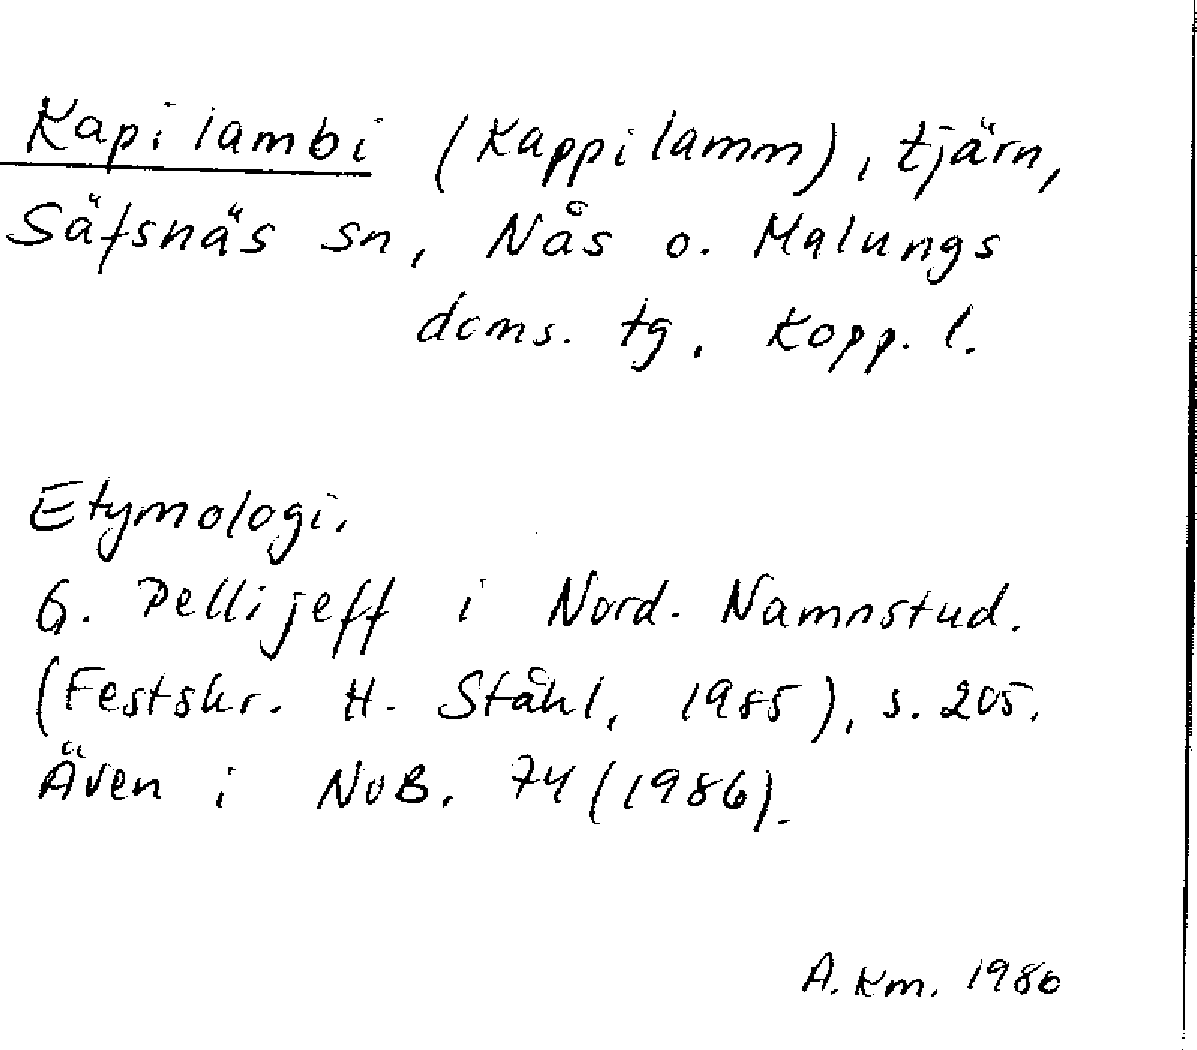 Kapilambi (Kappilamm), tjärn,
Säfsnäs sn, Nås o. Malungs
doms. tg. Kopp. l.
Etymologi.
G. Pellijeff i Nord. Namnstud.
(Festskr. H. Ståhl, 1985), s. 205.
Även i NoB. 74 (1986).
A. Km. 1986